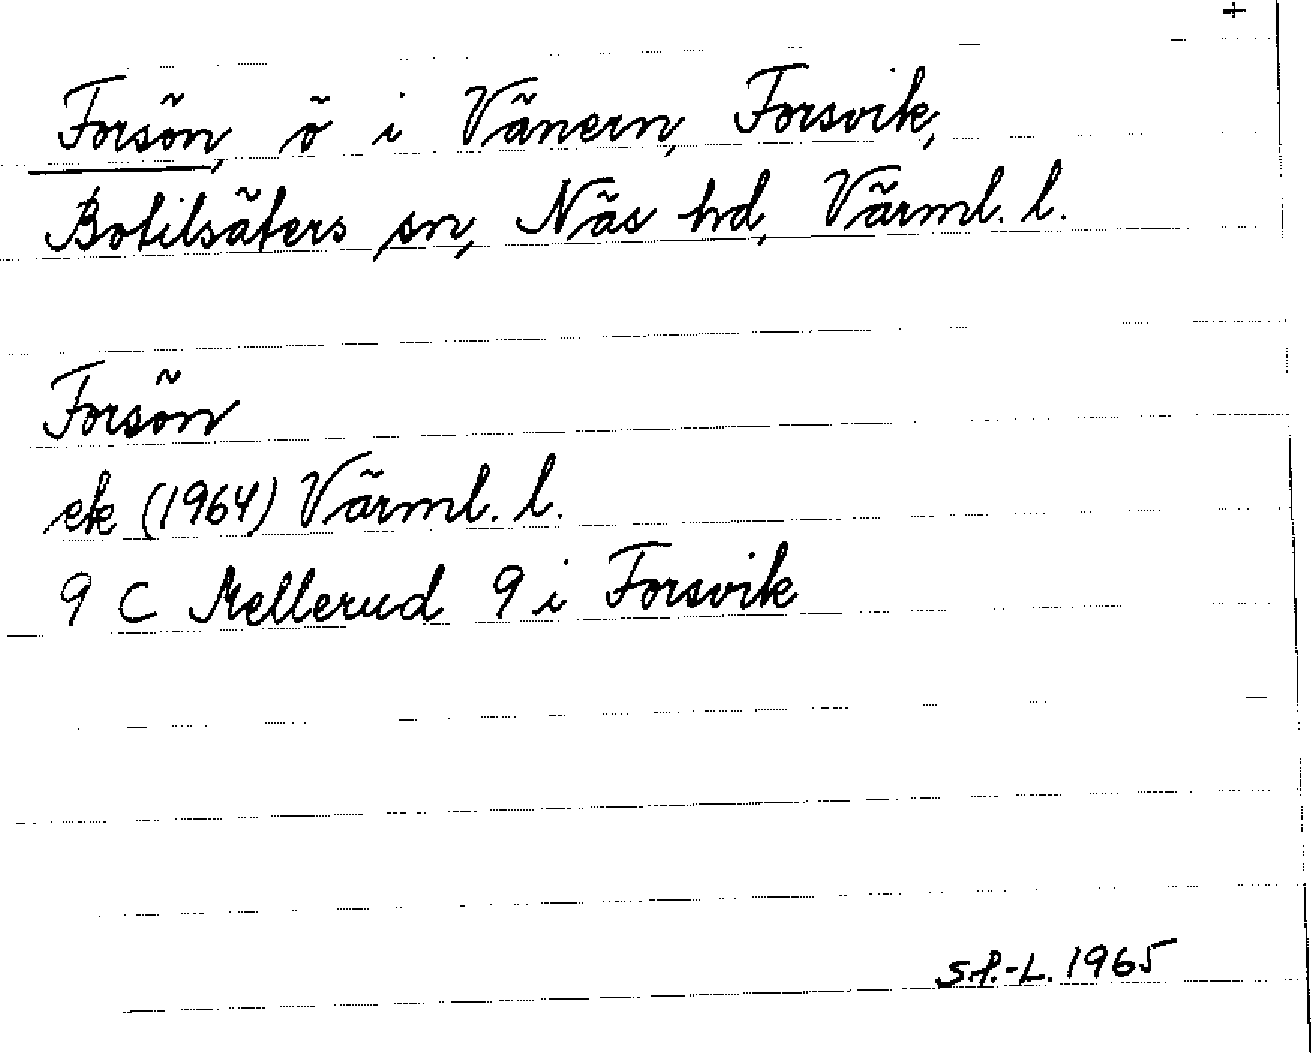 +
Forsön, ö i Vänern, Forsvik,
Botilsäters sn, Näs hd, Värml. l.
Forsön
ek (1964) Värml. l.
9 C Mellerud 9 i Forsvik
S.P.-L. 1965